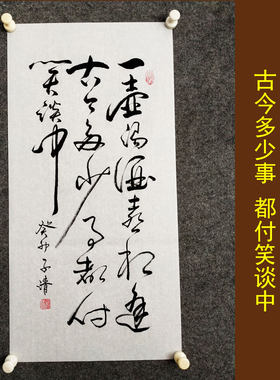 一壶浊酒喜相逢
古今多少事都付
笑谈中
癸卯子晴
古今多少事 都付笑谈中